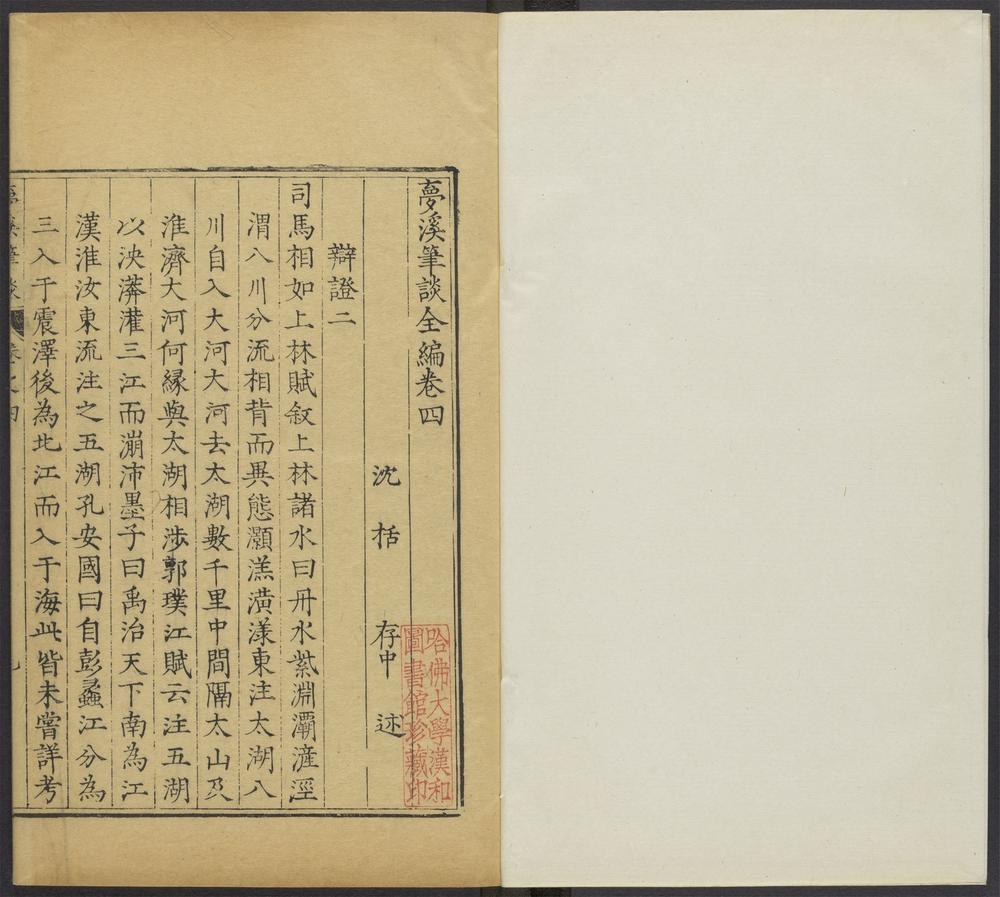 夢溪筆談全編卷四
沈括 存中 述
辯證二
司馬相如上林賦叙上林諸水曰丹水紫淵灞滻涇
渭八川分流相背而異態灝溔潢漾東注太湖八
川自入大河大河去太湖數千里中間隔太山及
淮濟大河何緣與太湖相涉郭璞江賦云注五湖
以泱漭灌三江而漰沛墨子曰禹治天下南為江
漢淮汝東流注之五湖孔安國曰自彭蠡江分為
三入于震澤後為北江而入于海此皆未嘗詳考
哈佛大學漢和
圖書館珍藏印